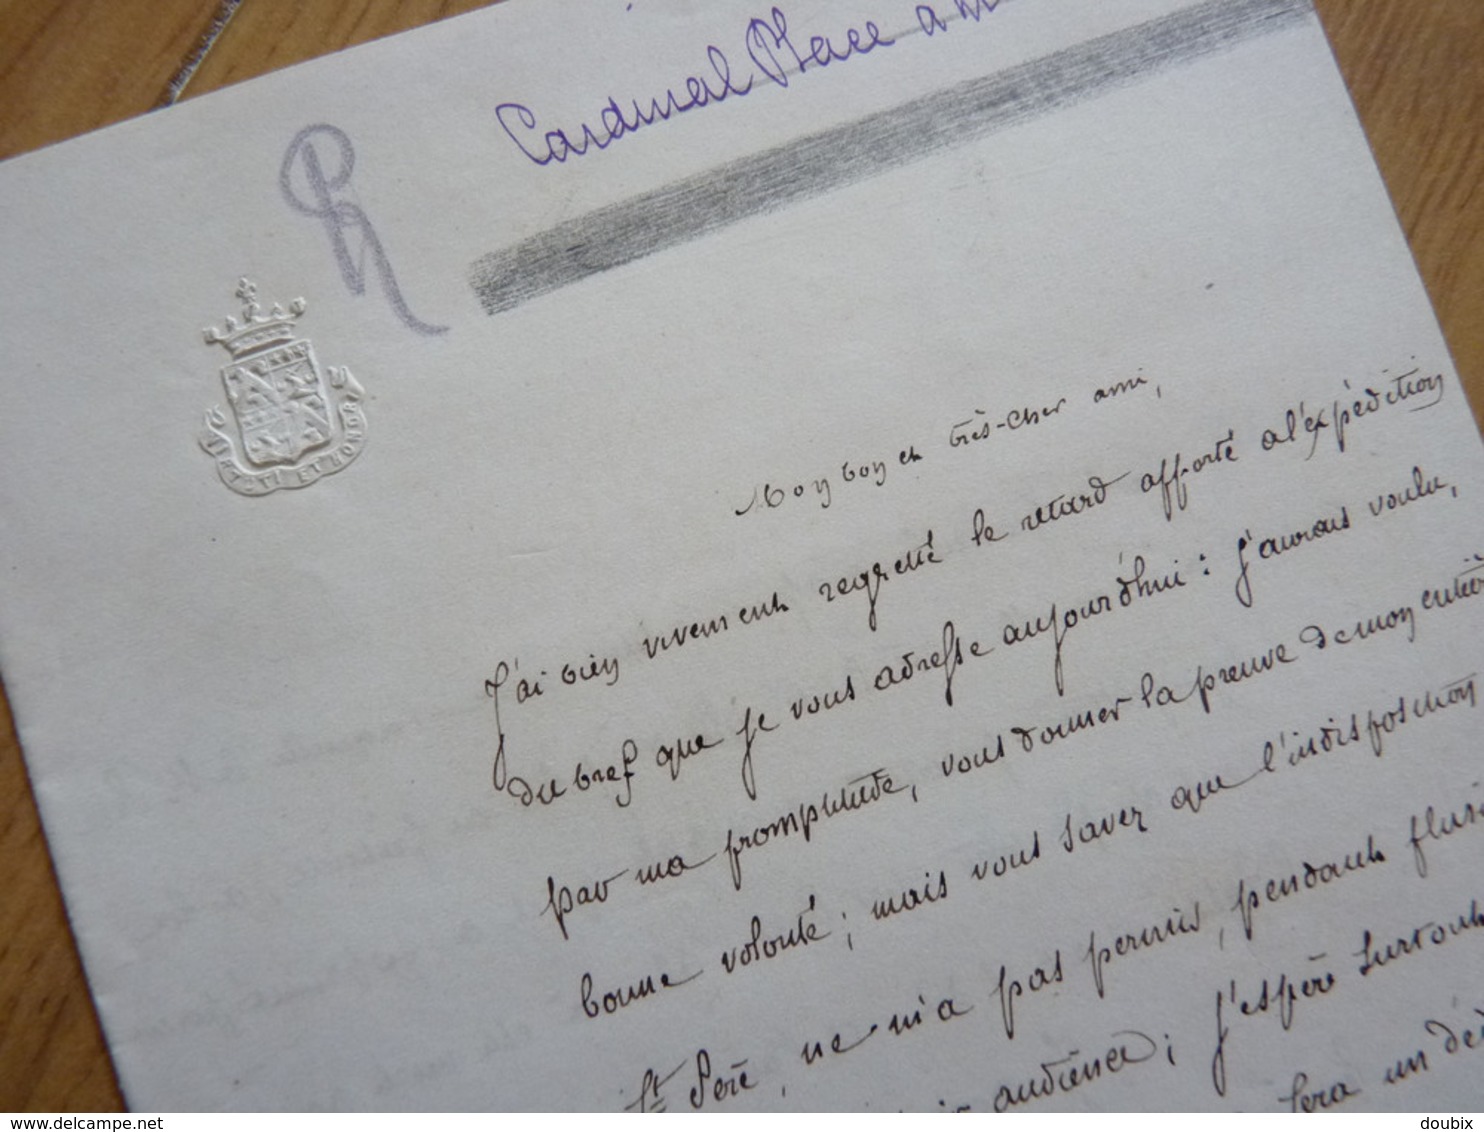 Cardinal Place
VIRTUTI ET HONORI
Mon bon et très-cher ami,
J'ai bien vivement regretté le retard apporté a l'expédition
du bref que je vous adresse aujourd'hui : j'aurais voulu,
par ma promptitude, vous donner la preuve de mon entiè
bonne volonté ; mais vous savez que l'indisposition
St Père, ne m'a pas permis, pendant plusi
audience ; j'espère surtout
sera un dé
delcampe.net
doubix